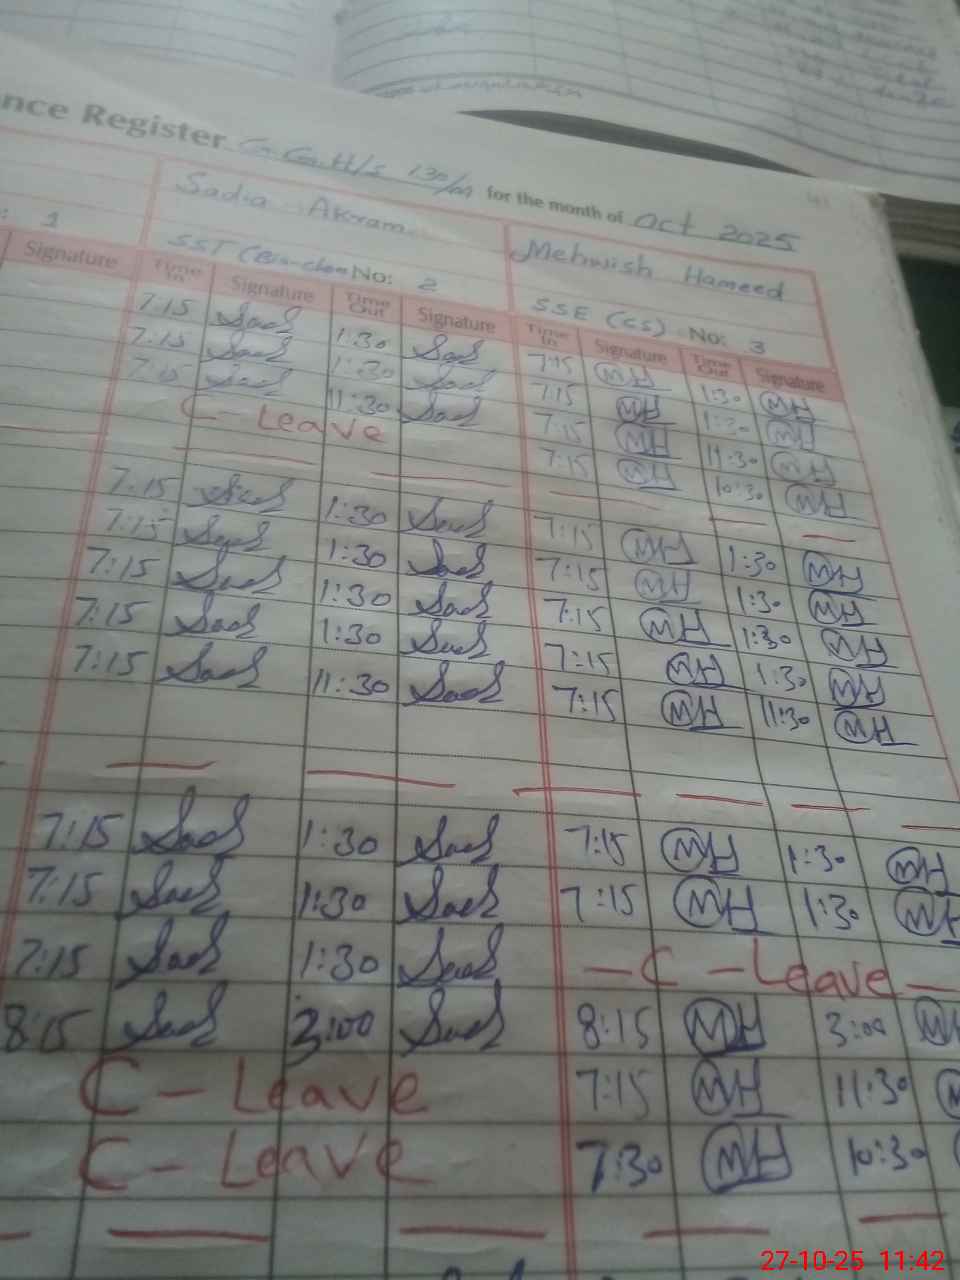 nce Register G.G.H/S 130/m for the month of Oct 2025
Sadia Akram Mehwish Hameed
: 1 SST (Bio-chem No: 2 SSE (CS) No: 3
Signature Time In Signature Time Out Signature Time In Signature Time Out Signature
7:15 Sad 1:30 Sad 7:15 MH 1:30 MH
7:15 Sad 1:30 Sad 7:15 MH 1:30 MH
7:15 Sad 11:30 Sad 7:15 MH 11:30 MH
C - Leave 7:15 MH 10:30 MH
7:15 Sad 1:30 Sad 7:15 MH 1:30 MH
7:15 Sad 1:30 Sad 7:15 MH 1:30 MH
7:15 Sad 1:30 Sad 7:15 MH 1:30 MH
7:15 Sad 1:30 Sad 7:15 MH 1:30 MH
7:15 Sad 11:30 Sad 7:15 MH 11:30 MH
7:15 Sad 1:30 Sad 7:15 MH 1:30 MH
7:15 Sad 1:30 Sad 7:15 MH 1:30 MH
7:15 Sad 1:30 Sad - C - Leave -
8:15 Sad 3:00 Sad 8:15 MH 3:00 M
C - Leave 7:15 MH 11:30 M
C - Leave 7:30 MH 10:30
27-10-25 11:42